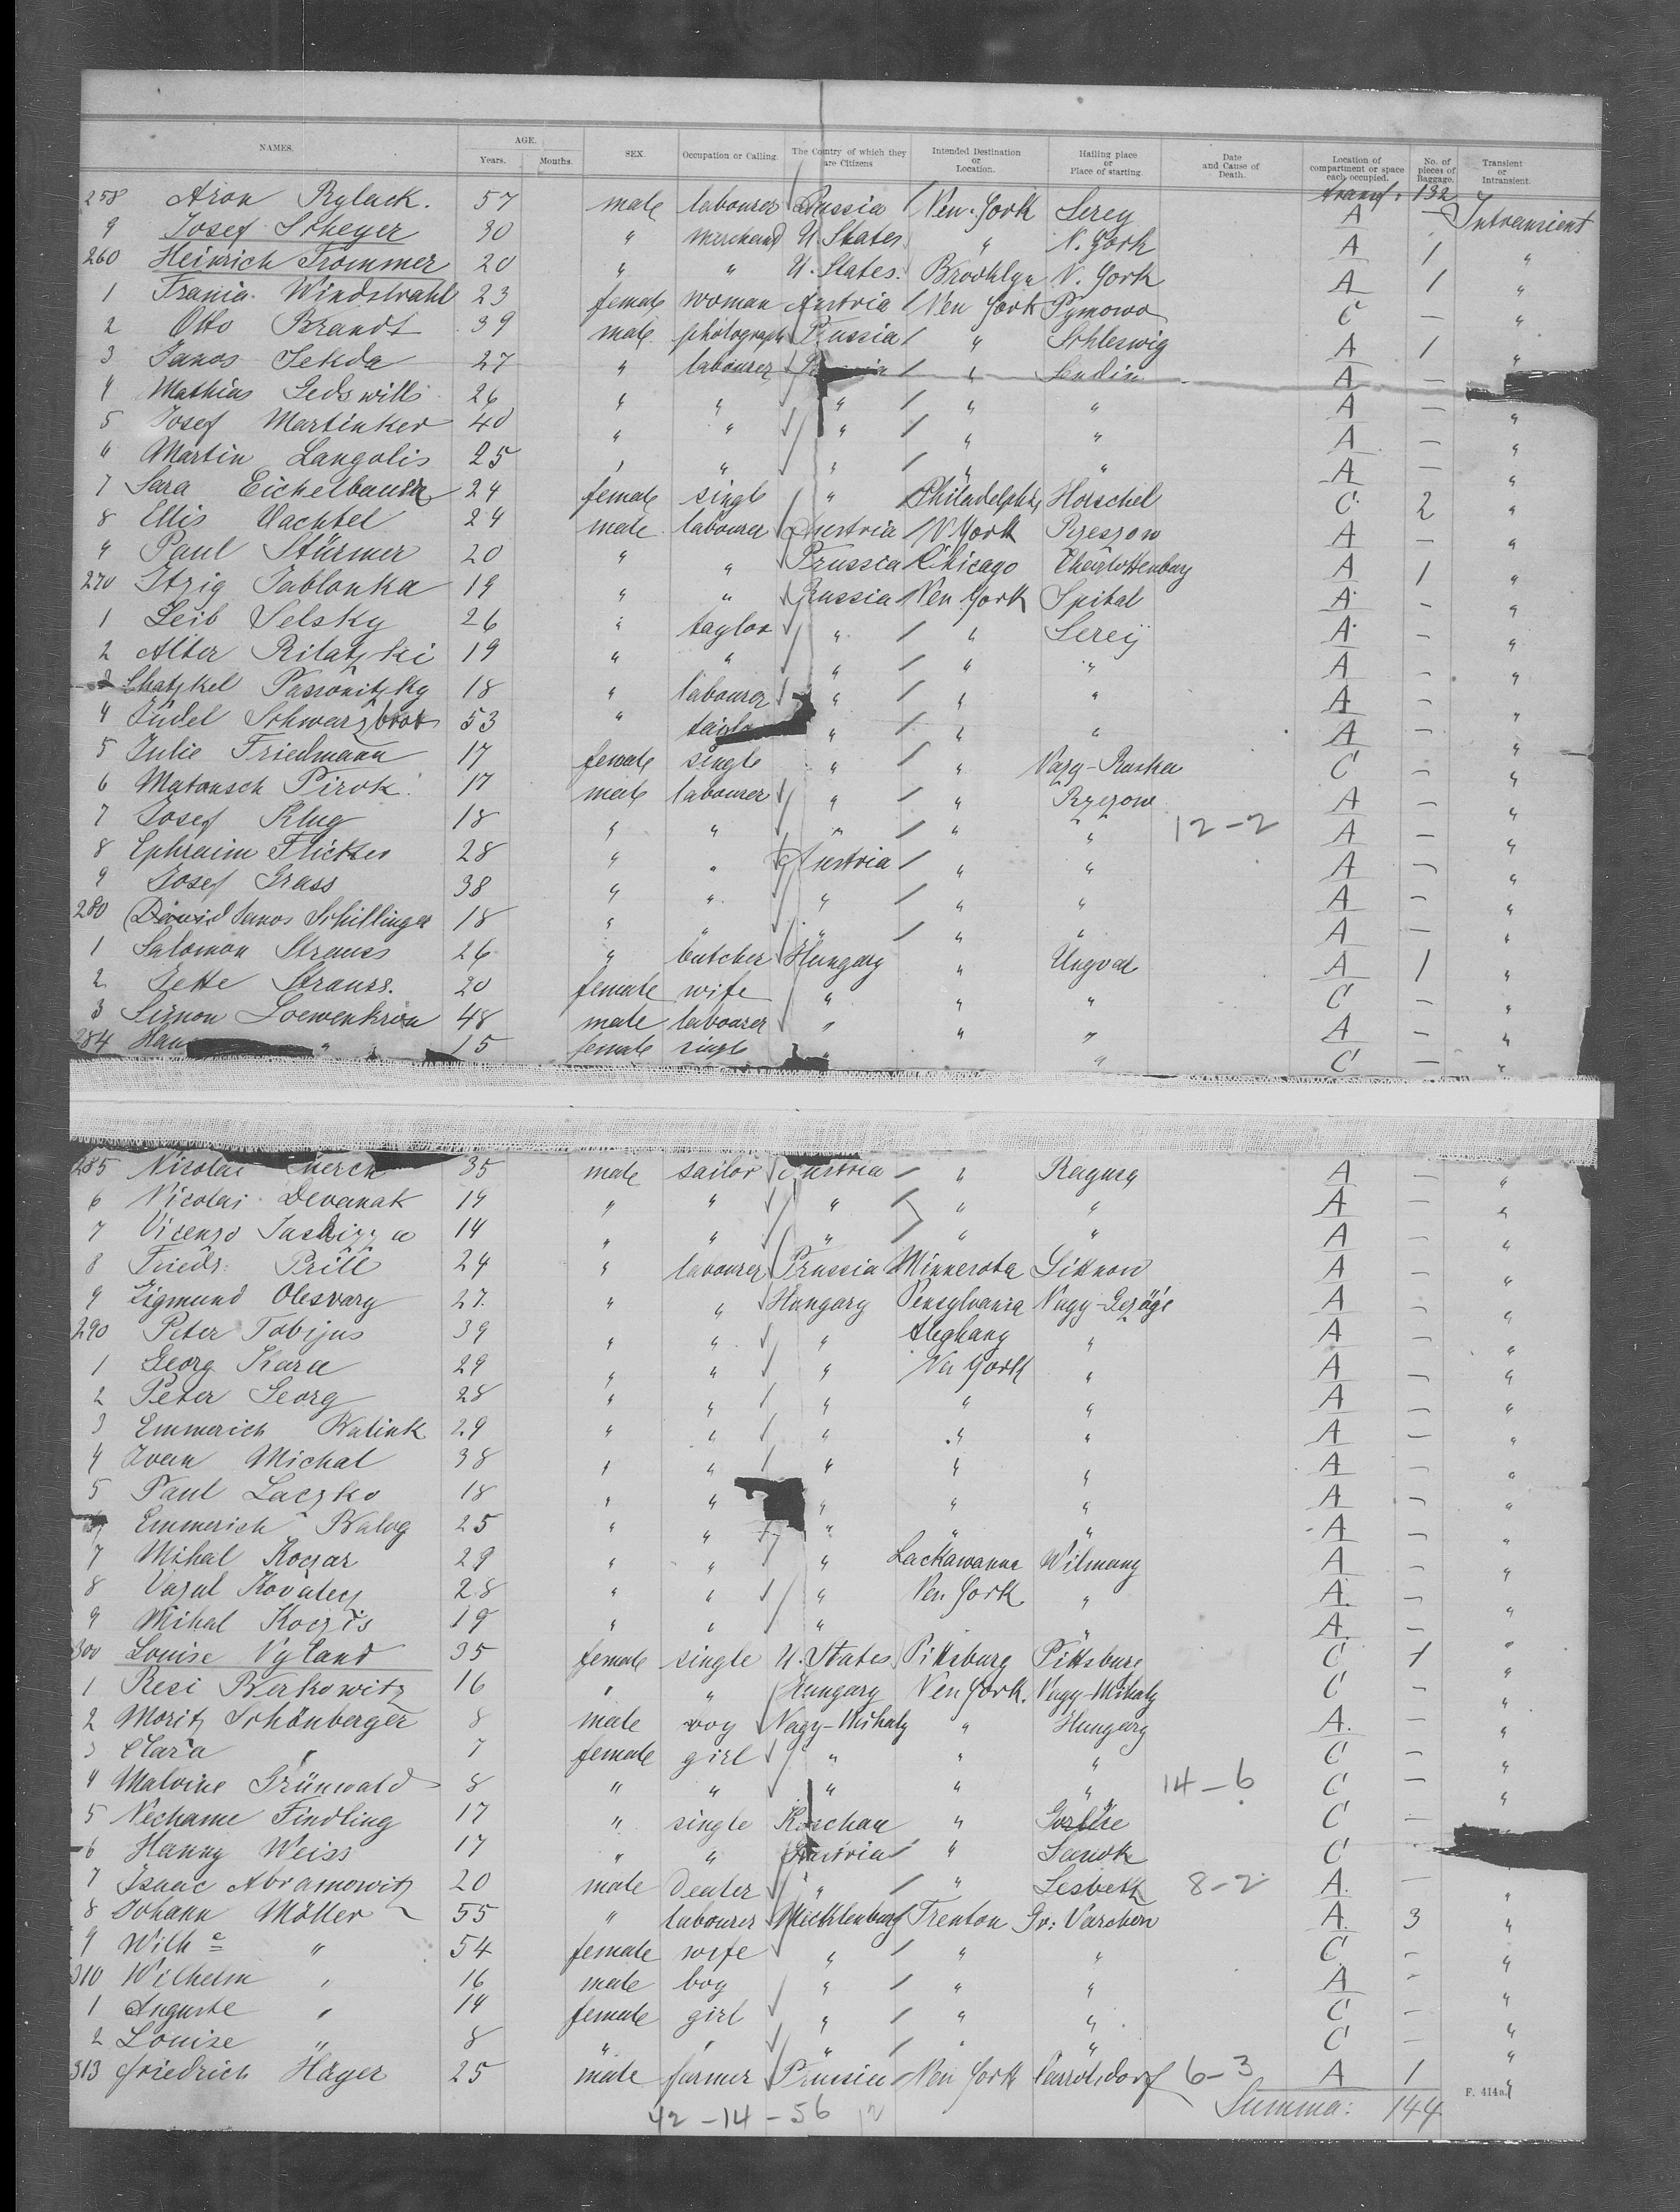 NAMES. AGE. Years. Months. SEX. Occupation or Calling. The Country of which they are Citizens Intended Destination or Location. Hailing place or Place of starting. Date and Cause of Death. Location of compartment or space each occupied. No. of pieces of Baggage. Transient or Intransient.
transf. 132
258 Aron Rylack. 57 male labourer Russia New-York Serey A — Intransient
9 Josef Scheyer 30 " merchand U. States " N. York A 1 "
260 Heinrich Trommer 20 " " U. States. Brooklyn N. York A 1 "
1 Frania Windstrahl 23 female woman Austria New York Pymowo C — "
2 Otto Brandt 39 male photograph Prussia " Schleswig A 1 "
3 Janos Sekda 27 " labourer " Sendin A —
4 Mathias Gedswills 26 " " " " " A — "
5 Josef Martinker 40 " " " " " A — "
6 Martin Langolis 25 " " " " " A — "
7 Sara Eichelbaum 24 female single " Philadelphia Horschel C 2 "
8 Ellis Wachtel 24 male labourer Austria N York Rzeszow A — "
9 Paul Stürmer 20 " " Prussia Chicago Charlottenburg A 1 "
270 Itzig Jablonka 19 " " Russia New York Spital A — "
1 Leib Selsky 26 " taylor " " Serey A — "
2 Alter Rilatzki 19 " " " " " A — "
3 Chatzkel Passonitzky 18 " labourer " " " A — "
4 Judel Schwarzbrot 53 " " " " A — "
5 Julie Friedmann 17 female single " " Vazy-Ruska C — "
6 Matausch Pirok 17 male labourer " " Rzezow A — "
7 Josef Klug 18 " " " " " 12-2 A — "
8 Ephraim Flicker 28 " " Austria " " A — "
9 Josef Grass 38 " " " " " A — "
280 David Janos Schillinger 18 " " " " " A — "
1 Salomon Strauss 26 " butcher Hungary " Ungvar A 1 "
2 Jette Strauss. 20 female wife " " " C — "
3 Simon Loewenkron 48 male labourer " " " A — "
284 Han 15 female single " " C — "
285 Nicolai 35 male sailor Austria " Ragusa A — "
6 Nicolai Devanak 14 " " " " " A — "
7 Vicenzo 14 " " " " " A — "
8 Friedr. Prill 24 " labourer Prussia Minnesota Liknow A — "
9 Zigmund Olesvary 27. " " Hungary Pensylvania A — "
290 Peter Tobijus 39 " " " Aleghany " A — "
1 Georg Kara 29 " " " New York " A — "
2 Peter Georg 28 " " " " " A — "
3 Emmerich Balink 29 " " " " " A — "
4 Ivan Michal 38 " " " " " A — "
5 Paul Laczko 18 " " " " " A — "
6 Emmerich Balog 25 " " " " " A — "
7 Mihal Koczar 29 " " " Lackawanna Wilmany A — "
8 Vazul Kovalecz 28 " " " New York " A. — "
9 Mihal Koczis 19 " " " " A. — "
300 Louise Vyland 35 female single U. States Pittsburg Pittsburg C 1 "
1 Resi Berkowitz 16 " " Hungary New York. Nagy-Mihaly C — "
2 Moritz Schönberger 8 male boy Nagy-Mihaly " Hungary A. — "
3 Clara " 7 female girl " " " C — "
4 Malvine Grünwald 8 " " " " " 14-6 C — "
5 Nechame Findling 17 " single Kaschau " Gorlice C —
6 Hanny Weiss 17 " " Austria " Sanok C
7 Isaac Abramowitz 20 male dealer " " Lesbeth 8-2 A. — "
8 Johann Möller 55 " labourer Mecklenburg Trenton Gr: Varchow A. 3 "
9 Wilhe " 54 female wife " " " C. — "
310 Wilhelm " 16 male boy " " " A — "
1 Auguste " 14 female girl " " " C — "
2 Louise " 8 " " " " " C — "
313 Friedrich Häger 25 male farmer Prussia New York 6-3 A 1 "
F. 414a
42-14-56 12 Summa: 144